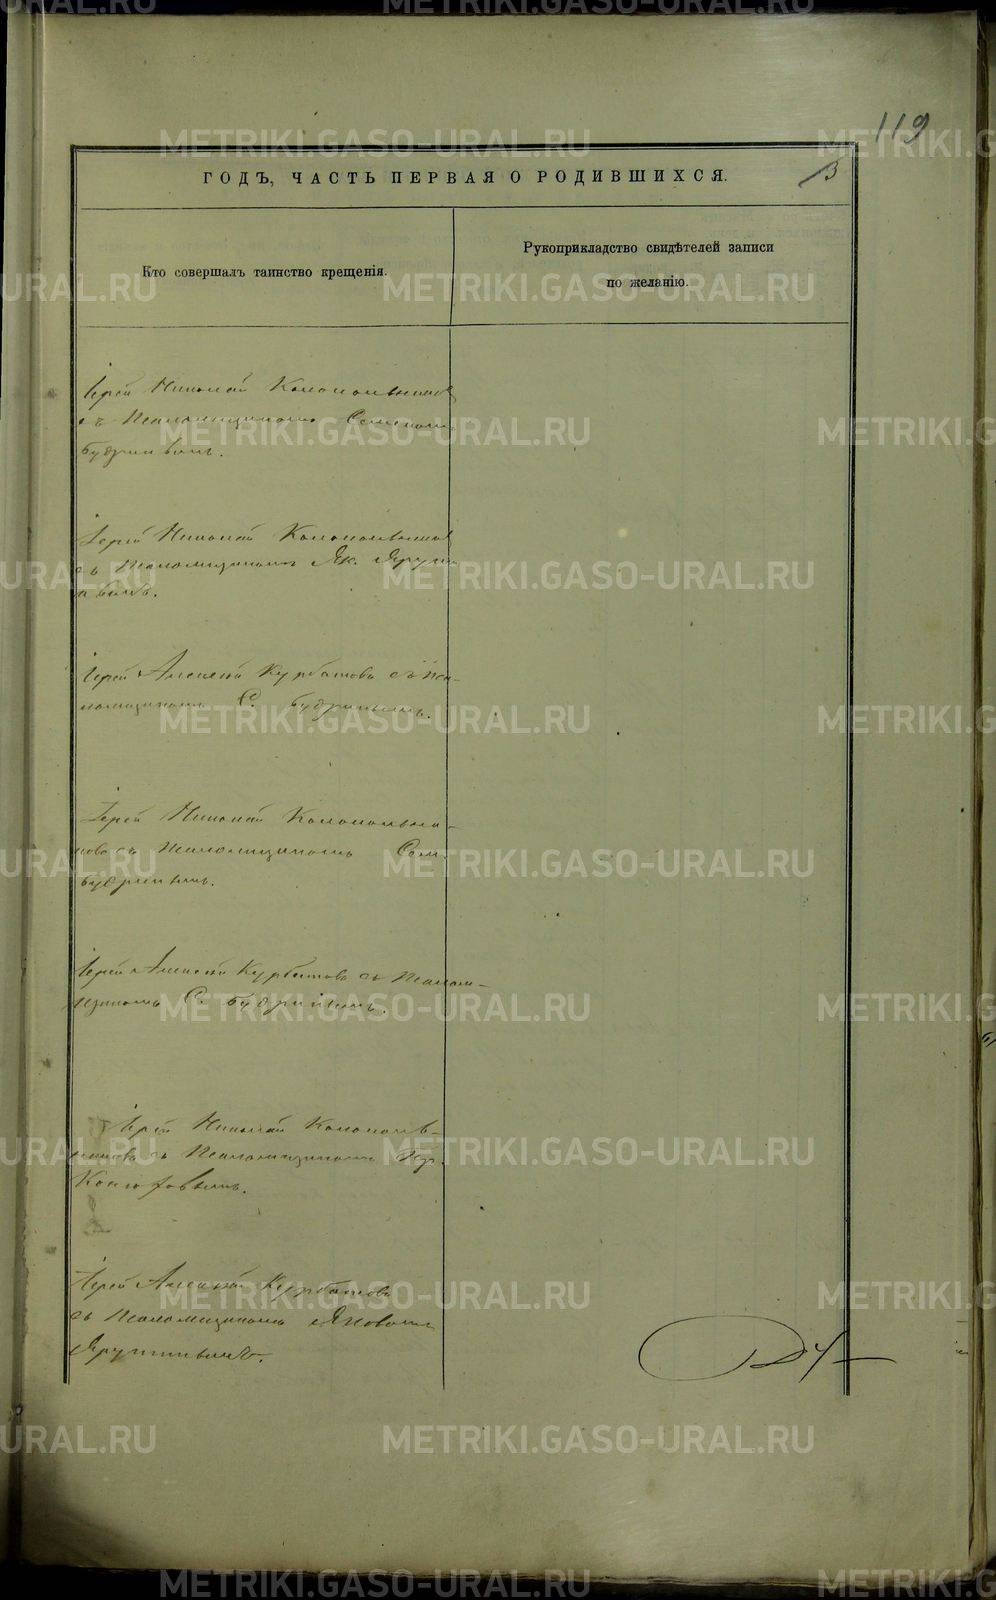 119
ГОДЪ, ЧАСТЬ ПЕРВАЯ О РОДИВШИХСЯ.
3
Кто совершалъ таинство крещенія.
Рукоприкладство свидѣтелей записи
по желанію.
Іерей Николай Колокольников
съ Псаломщикомъ Семеномъ
Будринымъ.
Іерей Николай Колокольников
съ Псаломщикомъ Як.
Іерей Алексѣй Курбатовъ съ Пса-
ломщикомъ С. Будринымъ.
Іерей Николай Колокольни-
ковъ съ Псаломщикомъ Сем.
Будринымъ.
Іерей Алексѣй Курбатовъ съ Псалом-
щикомъ С. Будринымъ.
Іерей Николай Колоколь-
никовъ съ Псаломщикомъ
Конюховымъ.
Іерей Алексѣй Курбатовъ
съ Псаломщикомъ Яковомъ
METRIKI.GASO-URAL.RU